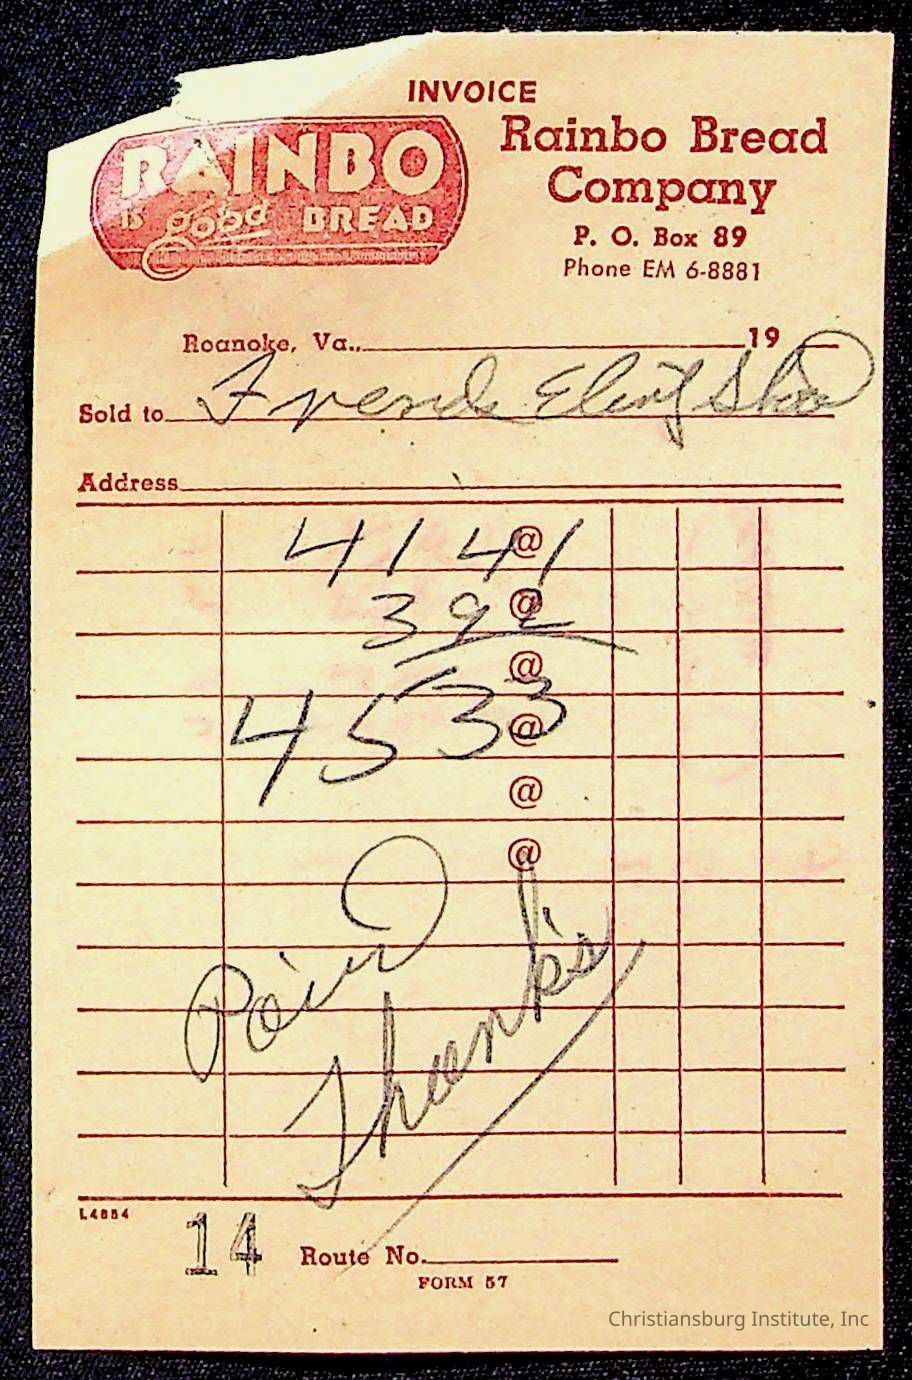 INVOICE
RAINBO
IS good BREAD
Rainbo Bread
Company
P. O. Box 89
Phone EM 6-8881
Roanoke, Va., 19
Sold to Frends
Address
4141 @
392 @
@
4533 @
@
@
Paid
Thank's
L4884
14 Route No.
FORM 57
Christiansburg Institute, Inc